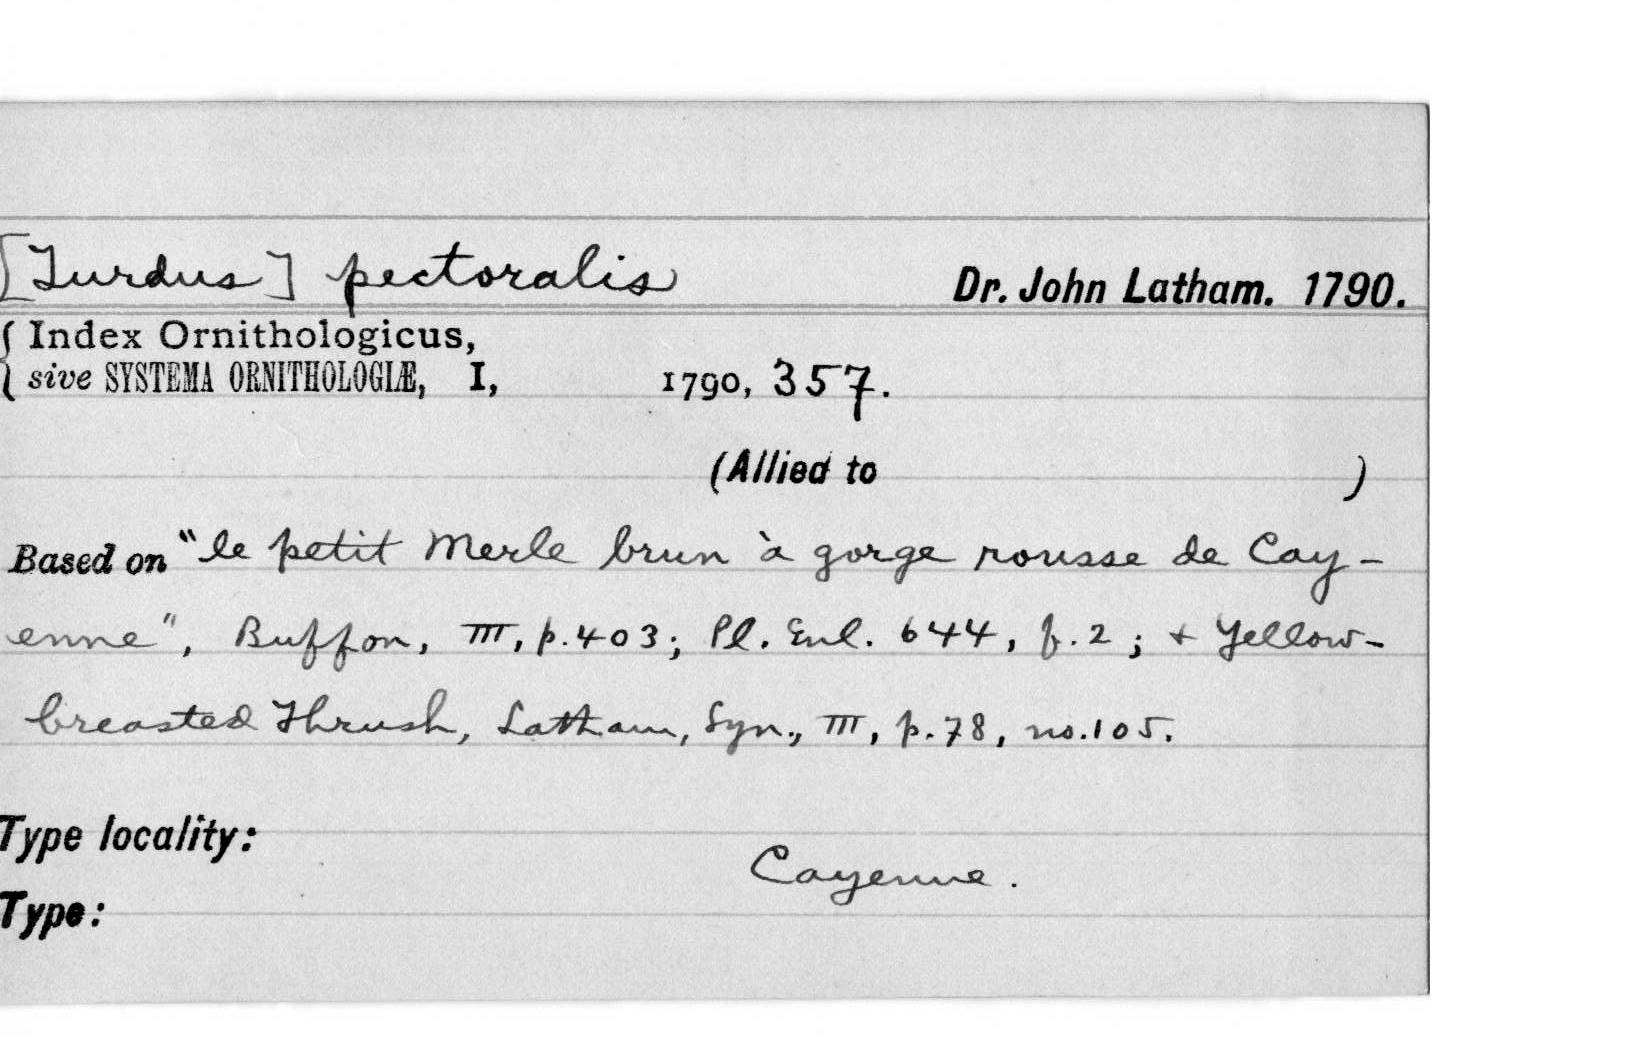 [Turdus] pectoralis Dr. John Latham. 1790.
{ Index Ornithologicus,
sive SYSTEMA ORNITHOLOGIÆ, I, 1790, 357.
(Allied to )
Based on "le petit Merle brun à gorge rousse de Cay-
enne", Buffon, III, p.403; Pl. Enl. 644, f.2; + Yellow-
breasted Thrush, Latham, Syn., III, p.78, no.105.
Type locality:
Cayenne.
Type: